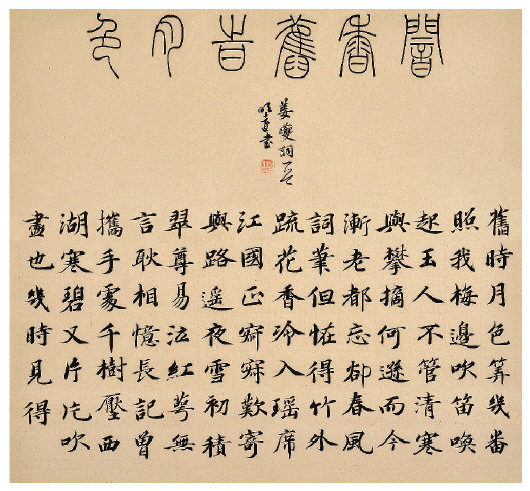 闇香舊旹月色
姜夔詞
舊時月色筭幾番
照我梅邊吹笛喚
起玉人不管清寒
與攀摘何遜而今
漸老都忘卻春風
詞筆但恠得竹外
疏花香冷入瑤席
江國正寂寂歎寄
與路遙夜雪初積
翠尊易泣紅萼無
言耿相憶長記曾
攜手處千樹壓西
湖寒碧又片片吹
盡也幾時見得